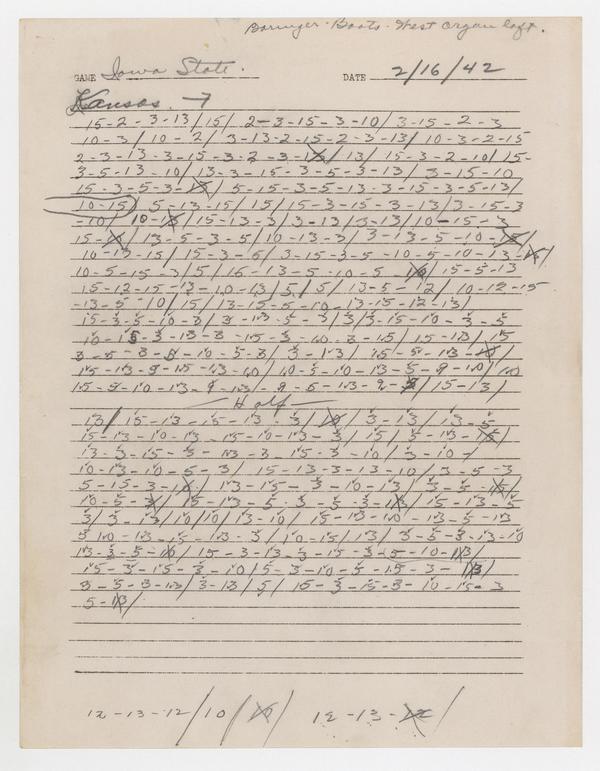 Boringer - Boots - West Organ loft.
GAME Iowa State. DATE 2/16/42
Kansas. →
15-2-3-13/15/ 2-3-15-3-10/3-15-2-3
10-3/10-2/ 3-13-2-15-2-3-13/10-3-2-15
2-3-13-3-15-3-2-3-13/13/15-3-2-10/15-
3-5-13-10/13-3-15-3-5-3-13/3-15-10
15-3-5-3-15/ 5-15-3-5-13-3-15-3-5-13/
10-15/ 5-13-15/15/15-3-15-3-13/3-15-3
-10/ 10-15/15-13-3/3-13/3-13/10-15-3
15-10/13-5-3-5/10-13-3/3-13-5-10-15/
10-13-15/15-3-5/3-15-3-5-10-5-10-13-15/
10-5-15-3/5/15-13-5-10-5-10/15-5-13
15-12-15-13-10-13/5/5/13-5-12/10-12-15
-13-5-10/15/13-15-5-10-13-15-12-13/
15-3-5-10-3/3-13-5-3/3/3-15-10-3-5
10-15-3-13-3-15-3-10-3-15/15-13/15
3-5-3-5-10-5-3/3-13/15-5-13-10/
15-13-5-15-13-10/10-5-10-13-5-9-10/10
15-5-10-13-9-13-9-5-13-9-5/15-13/
Half
13/15-13-15-13-3/10/3-13/13-5
15-13-10-13-15-10-13-3/15/5-13-15/
13-3-15-5-13-3-15-3-10/3-10-
10-13-10-5-3/ 15-13-3-13-10/3-5-3
5-15-3-10/ 13-15-3-10-13/3-5-15/
10-5-3/ 15-13-5-3-5-3-13/15-13-5
3/3-13/10/10/13-10/15-13-10-13-5-13
5-10-13-15-13-3/10-15/13/3-5-3-13-10
13-3-5-10/15-3-13-3-15-3-5-10-13/
15-3-15-3-10/5-3-10-5-15-3-13/
3-5-3-13/3-13/5/15-3-15-3-10-15-3
5-13/
12-13-12/10/10/ 12-13-12/